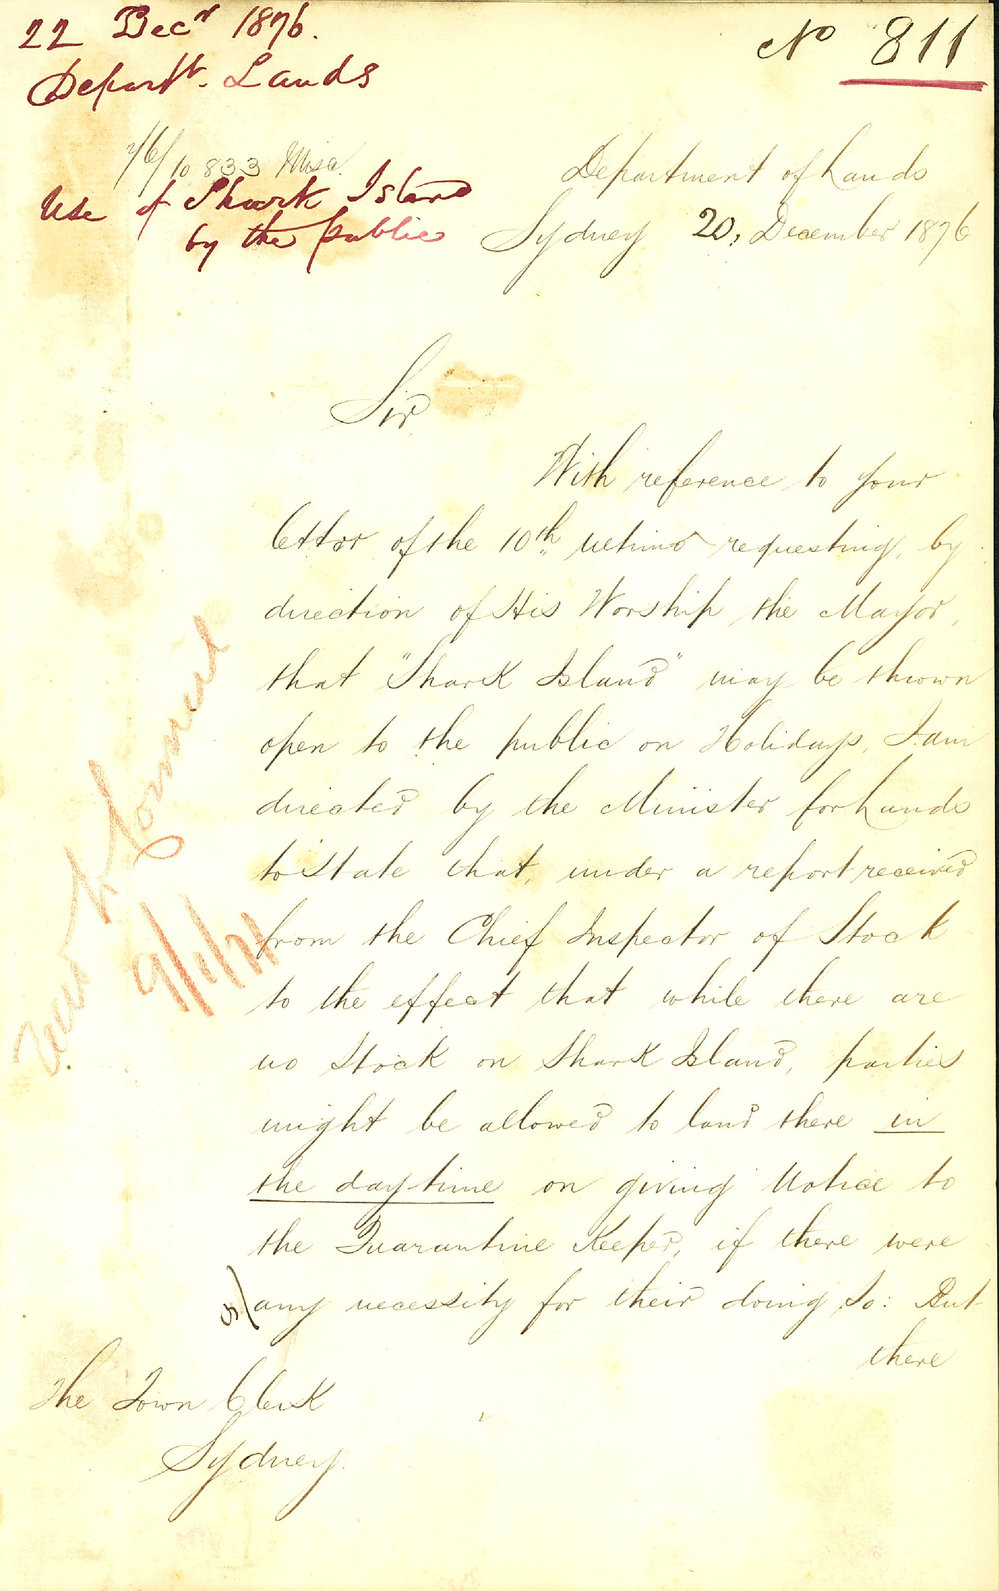 22 Decr 1876.
Departt. Lands
No 811
76/10833 Misc.
Use of Shark Island
by the public
Department of Lands
Sydney 20, December 1876
Sir
With reference to your
letter of the 10th ultimo requesting, by
direction of His Worship the Mayor,
that "Shark Island" may be thrown
open to the public on Holidays, I am
directed by the Minister for Lands
to state that, under a report received
from the Chief Inspector of Stock
to the effect that while there are
no Stock on Shark Island, parties
might be allowed to land there in
the day-time on giving Notice to
the Quarantine Keeper, if there were
any necessity for their doing so: But
there
The Town Clerk
Sydney.